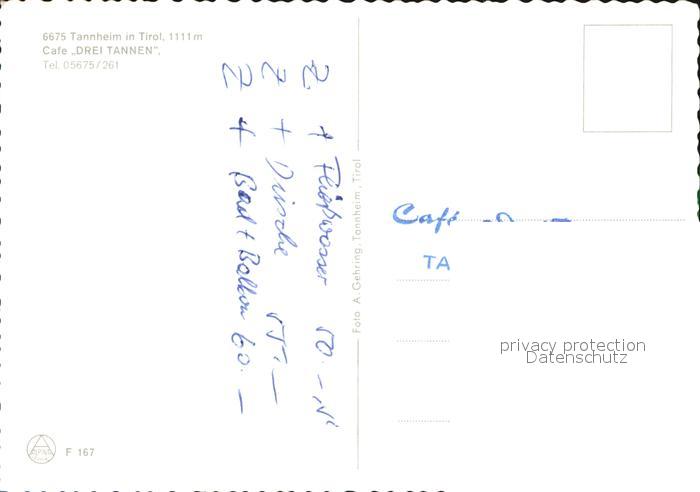 6675 Tannheim in Tirol, 1111 m
Cafe „DREI TANNEN",
Tel. 05675/261
Z. + Fließwasser 50.-
Z + Dusche 55.-
Z + Bad + Balkon 60.-
Foto A. Gehring, Tannheim, Tirol
Café
TA
privacy protection
Datenschutz
F 167